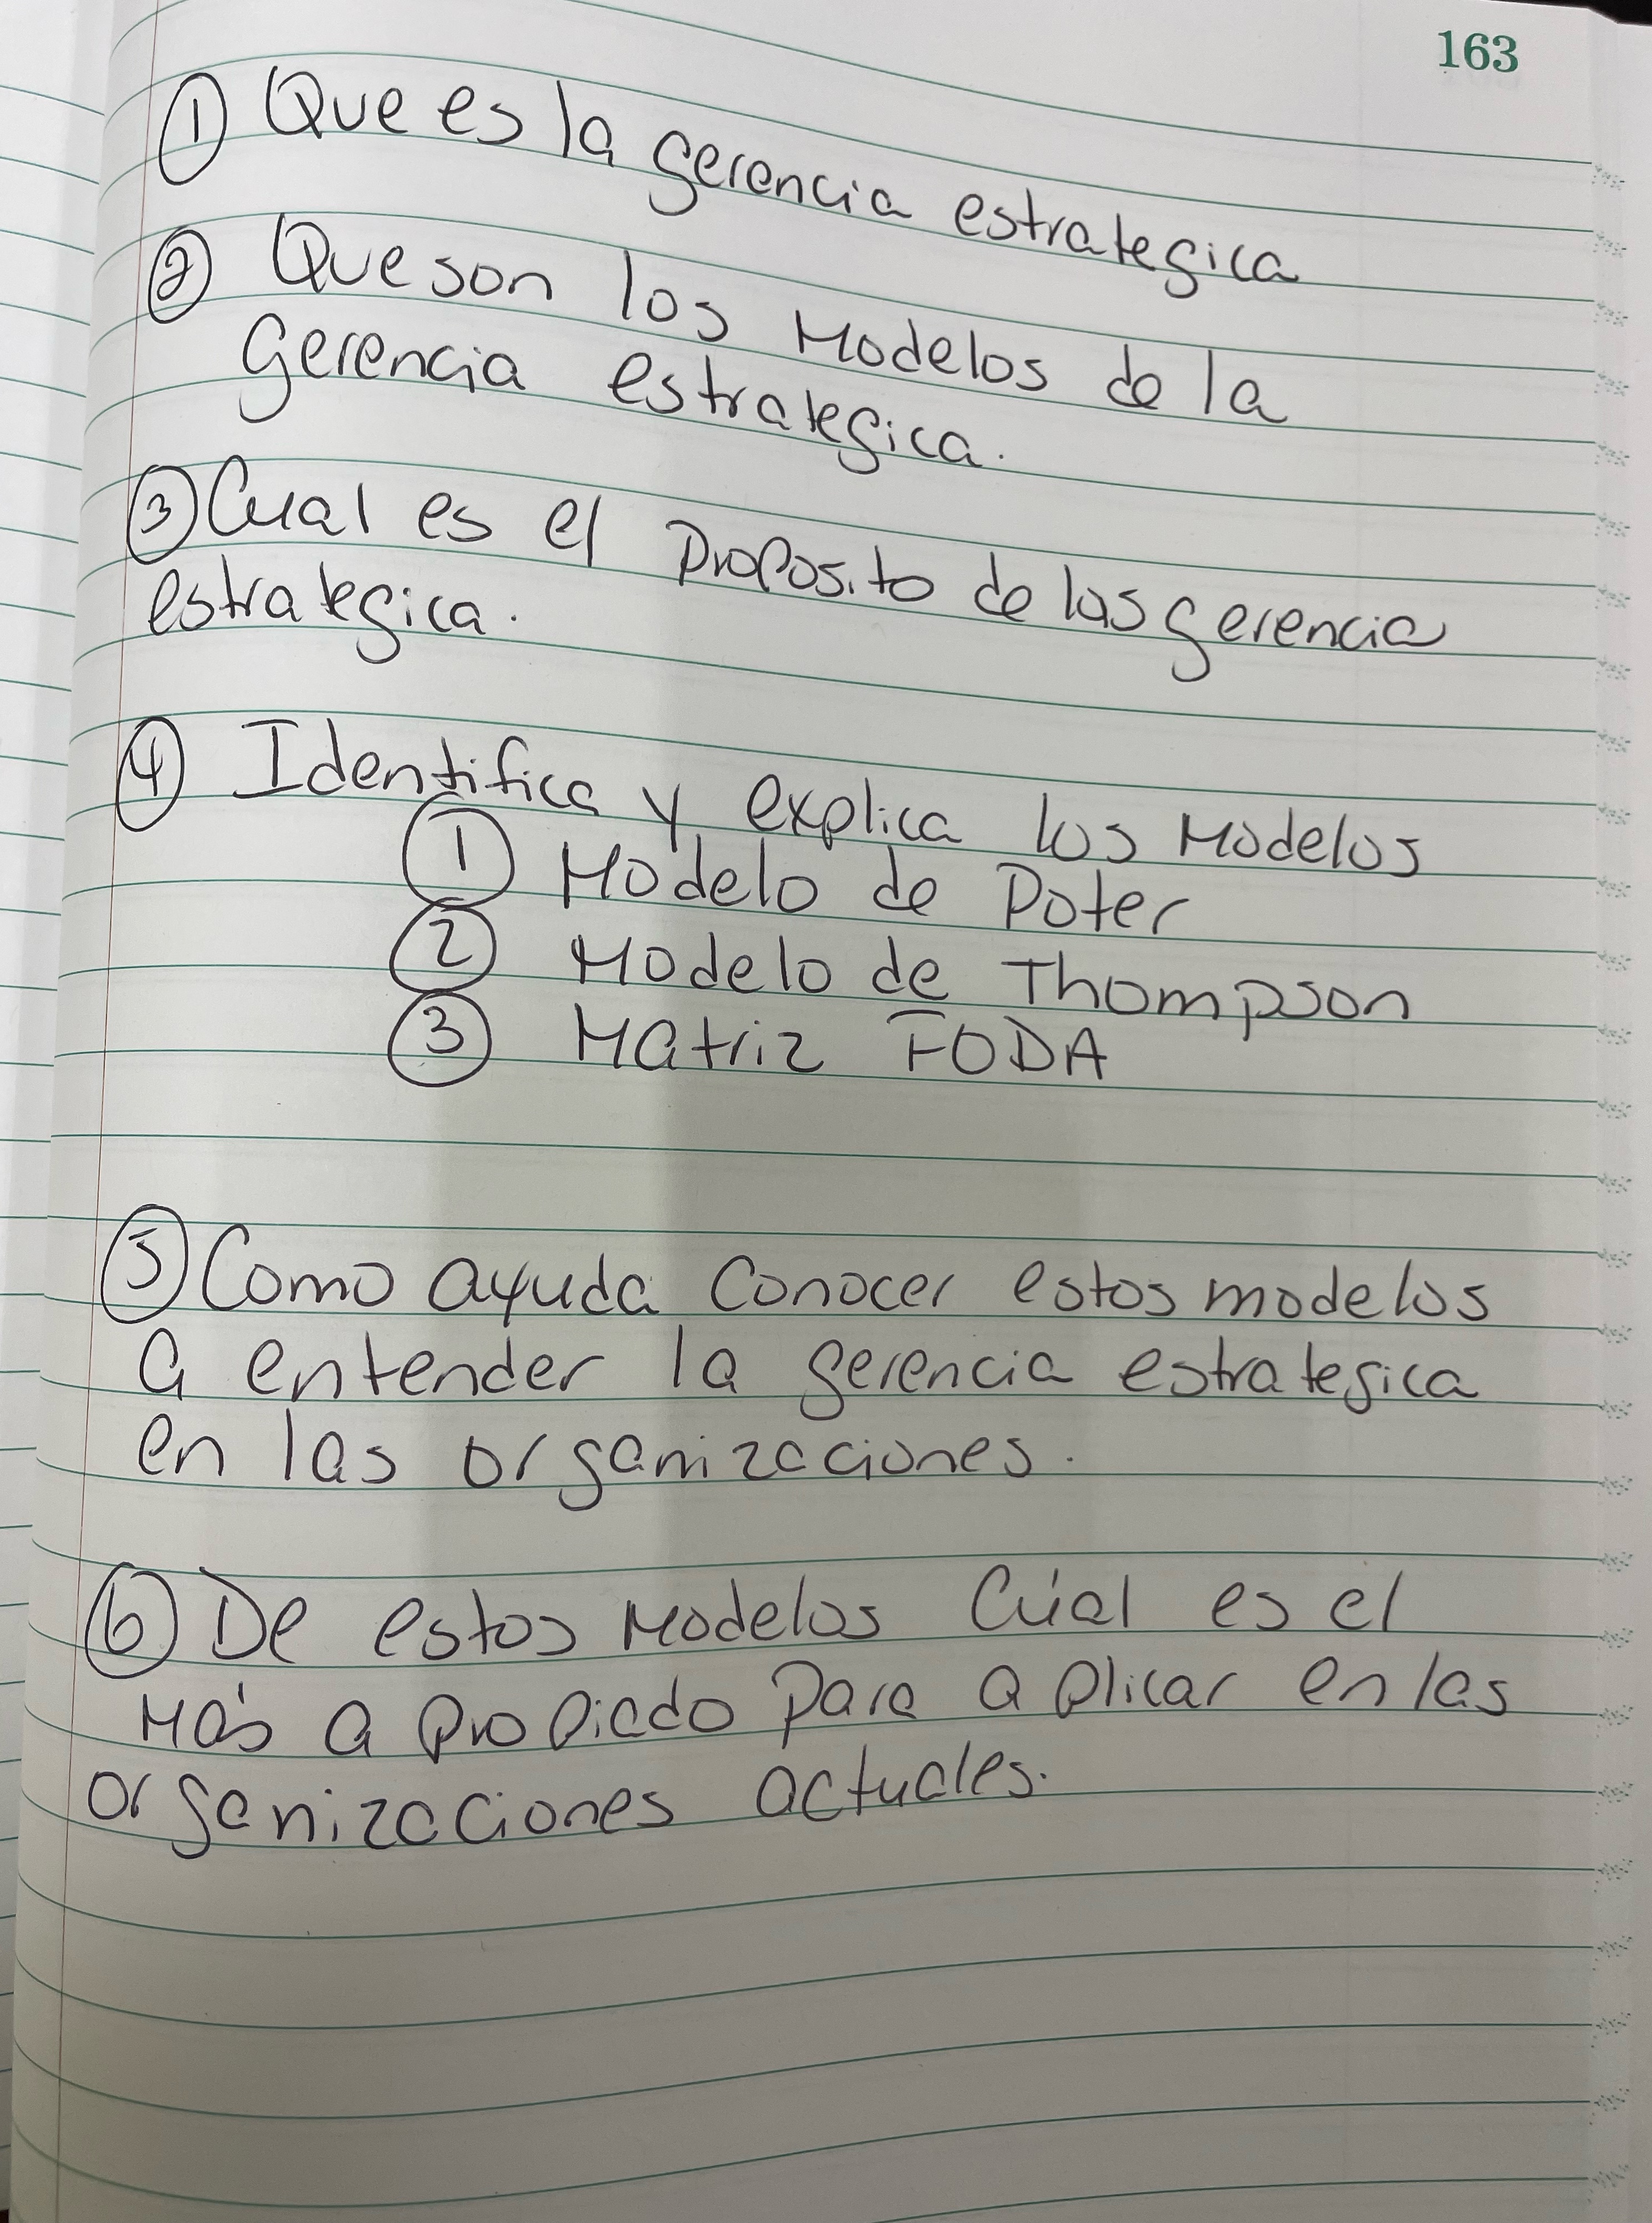 163
① Que es la gerencia estrategica
② Que son los Modelos de la
gerencia estrategica.
③ Cual es el proposito de las gerencia
estrategica.
④ Identifica y explica los Modelos
① Modelo de Poter
② Modelo de Thompson
③ Matriz FODA
⑤ Como ayuda conocer estos modelos
a entender la gerencia estrategica
en las organizaciones.
⑥ De estos Modelos Cúal es el
Más apropiado para aplicar en las
organizaciones actuales.